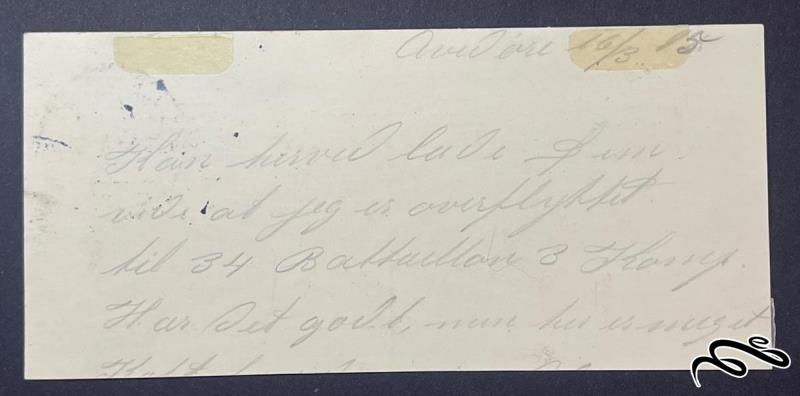 Avedøre 16/3 15
Kan herved lade Dem
vide at jeg er overflyttet
til 34 Battaillon 3 Komp.
Har det godt, men her er meget